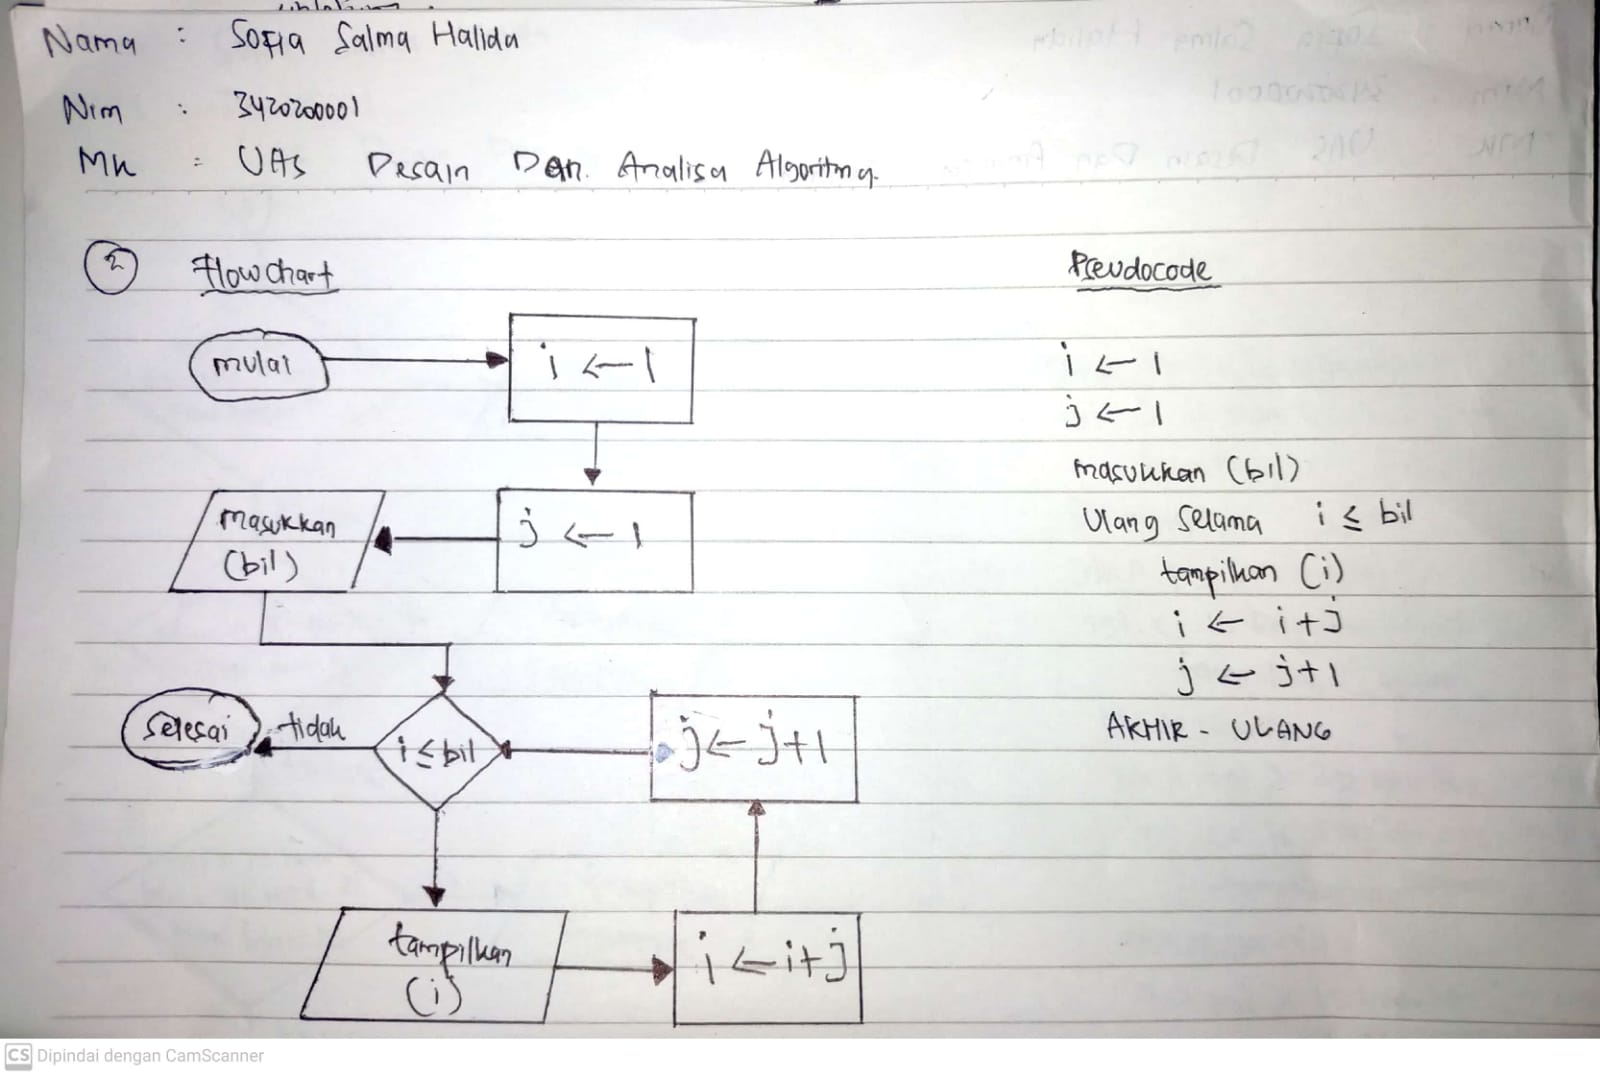 Nama : Sofia Salma Halida
Nim : 3420200001
Mk : UAS Desain Dan Analisa Algoritma.
2 Flowchart
mulai
i ← 1
j ← 1
masukkan
(bil)
i ≤ bil
tidak
selesai
tampilkan
(i)
i ← i+j
j ← j+1
Pseudocode
i ← 1
j ← 1
masukkan (bil)
Ulang selama i ≤ bil
tampilkan (i)
i ← i+j
j ← j+1
AKHIR - ULANG
CS Dipindai dengan CamScanner